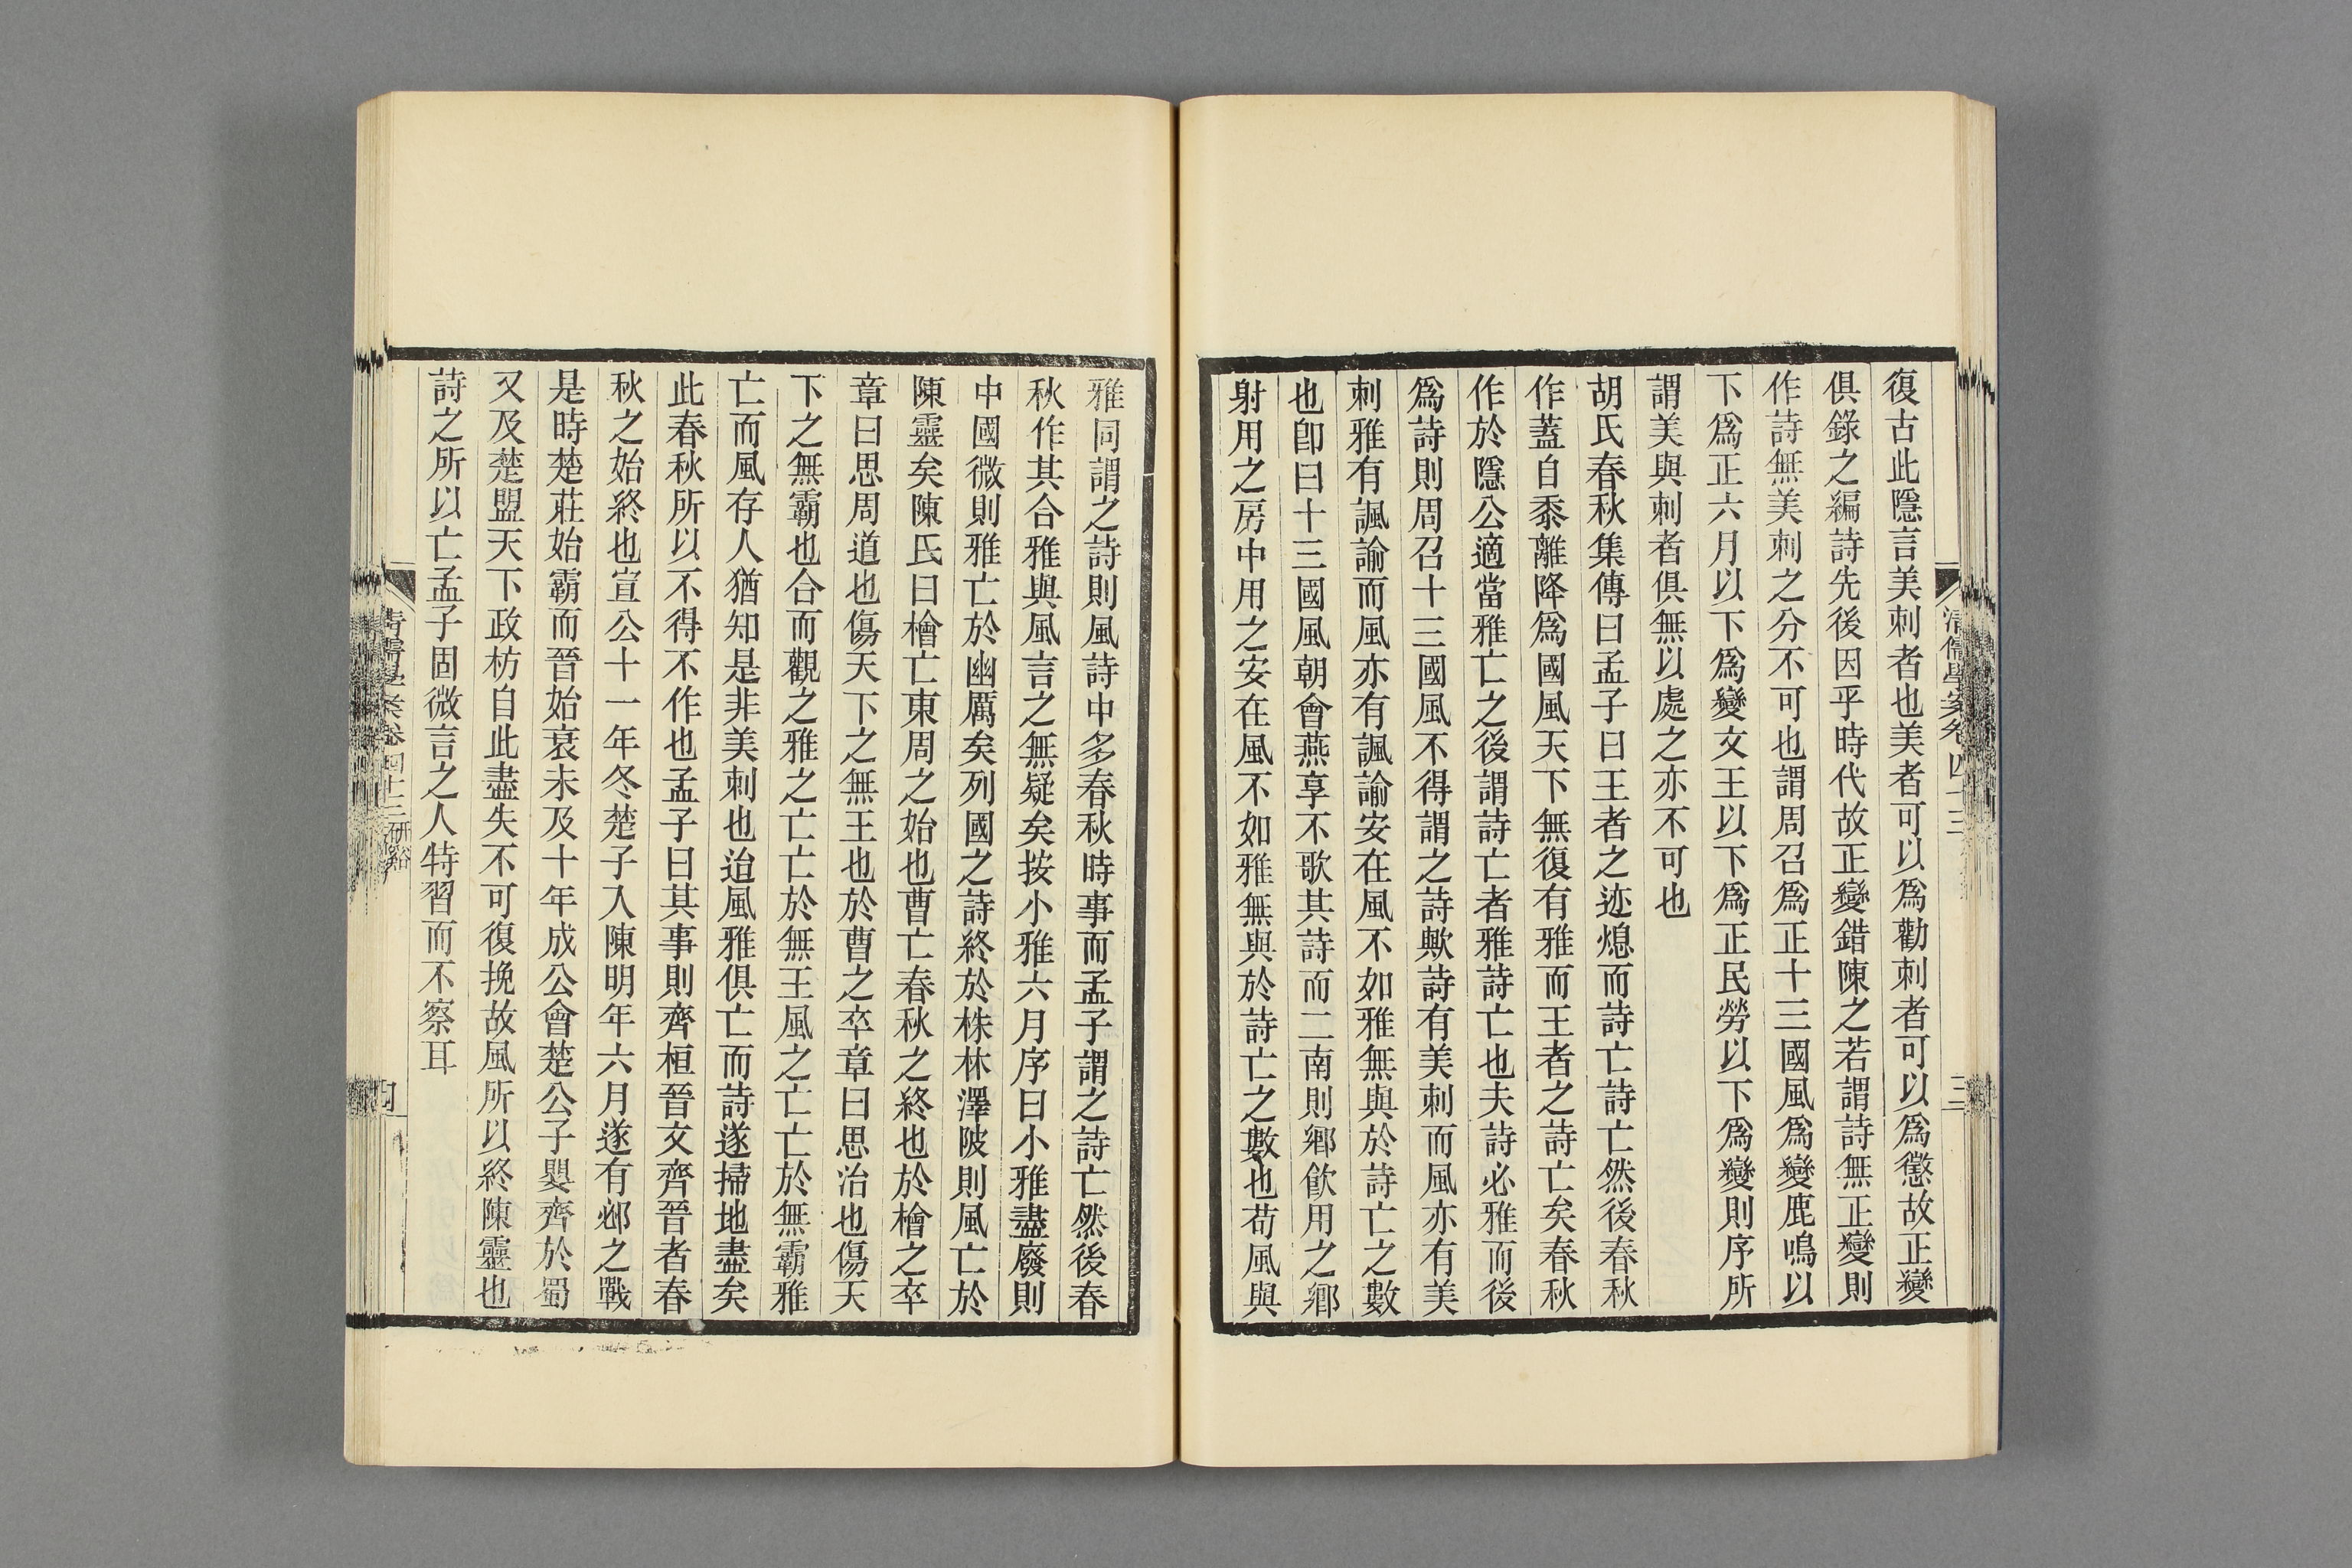 清儒學案卷四十三
三
復古此隱言美刺者也美者可以爲勸刺者可以爲懲故正變
俱錄之編詩先後因乎時代故正變錯陳之若謂詩無正變則
作詩無美刺之分不可也謂周召爲正十三國風爲變鹿鳴以
下爲正六月以下爲變文王以下爲正民勞以下爲變則序所
謂美與刺者俱無以處之亦不可也
胡氏春秋集傳曰孟子曰王者之迹熄而詩亡詩亡然後春秋
作蓋自黍離降爲國風天下無復有雅而王者之詩亡矣春秋
作於隱公適當雅亡之後謂詩亡者雅詩亡也夫詩必雅而後
爲詩則周召十三國風不得謂之詩歟詩有美刺而風亦有美
刺雅有諷諭而風亦有諷諭安在風不如雅無與於詩亡之數
也卽曰十三國風朝會燕享不歌其詩而二南則鄉飮用之鄉
射用之房中用之安在風不如雅無與於詩亡之數也苟風與
雅同謂之詩則風詩中多春秋時事而孟子謂之詩亡然後春
秋作其合雅與風言之無疑矣按小雅六月序曰小雅盡廢則
中國微則雅亡於幽厲矣列國之詩終於株林澤陂則風亡於
陳靈矣陳氏曰檜亡東周之始也曹亡春秋之終也於檜之卒
章曰思周道也傷天下之無王也於曹之卒章曰思治也傷天
下之無霸也合而觀之雅之亡亡於無王風之亡亡於無霸雅
亡而風存人猶知是非美刺也迨風雅俱亡而詩遂掃地盡矣
此春秋所以不得不作也孟子曰其事則齊桓晉文齊晉者春
秋之始終也宣公十一年冬楚子入陳明年六月遂有邲之戰
是時楚莊始霸而晉始衰未及十年成公會楚公子嬰齊於蜀
又及楚盟天下政枋自此盡失不可復挽故風所以終陳靈也
詩之所以亡孟子固微言之人特習而不察耳
清儒學案卷四十三 研谿
四